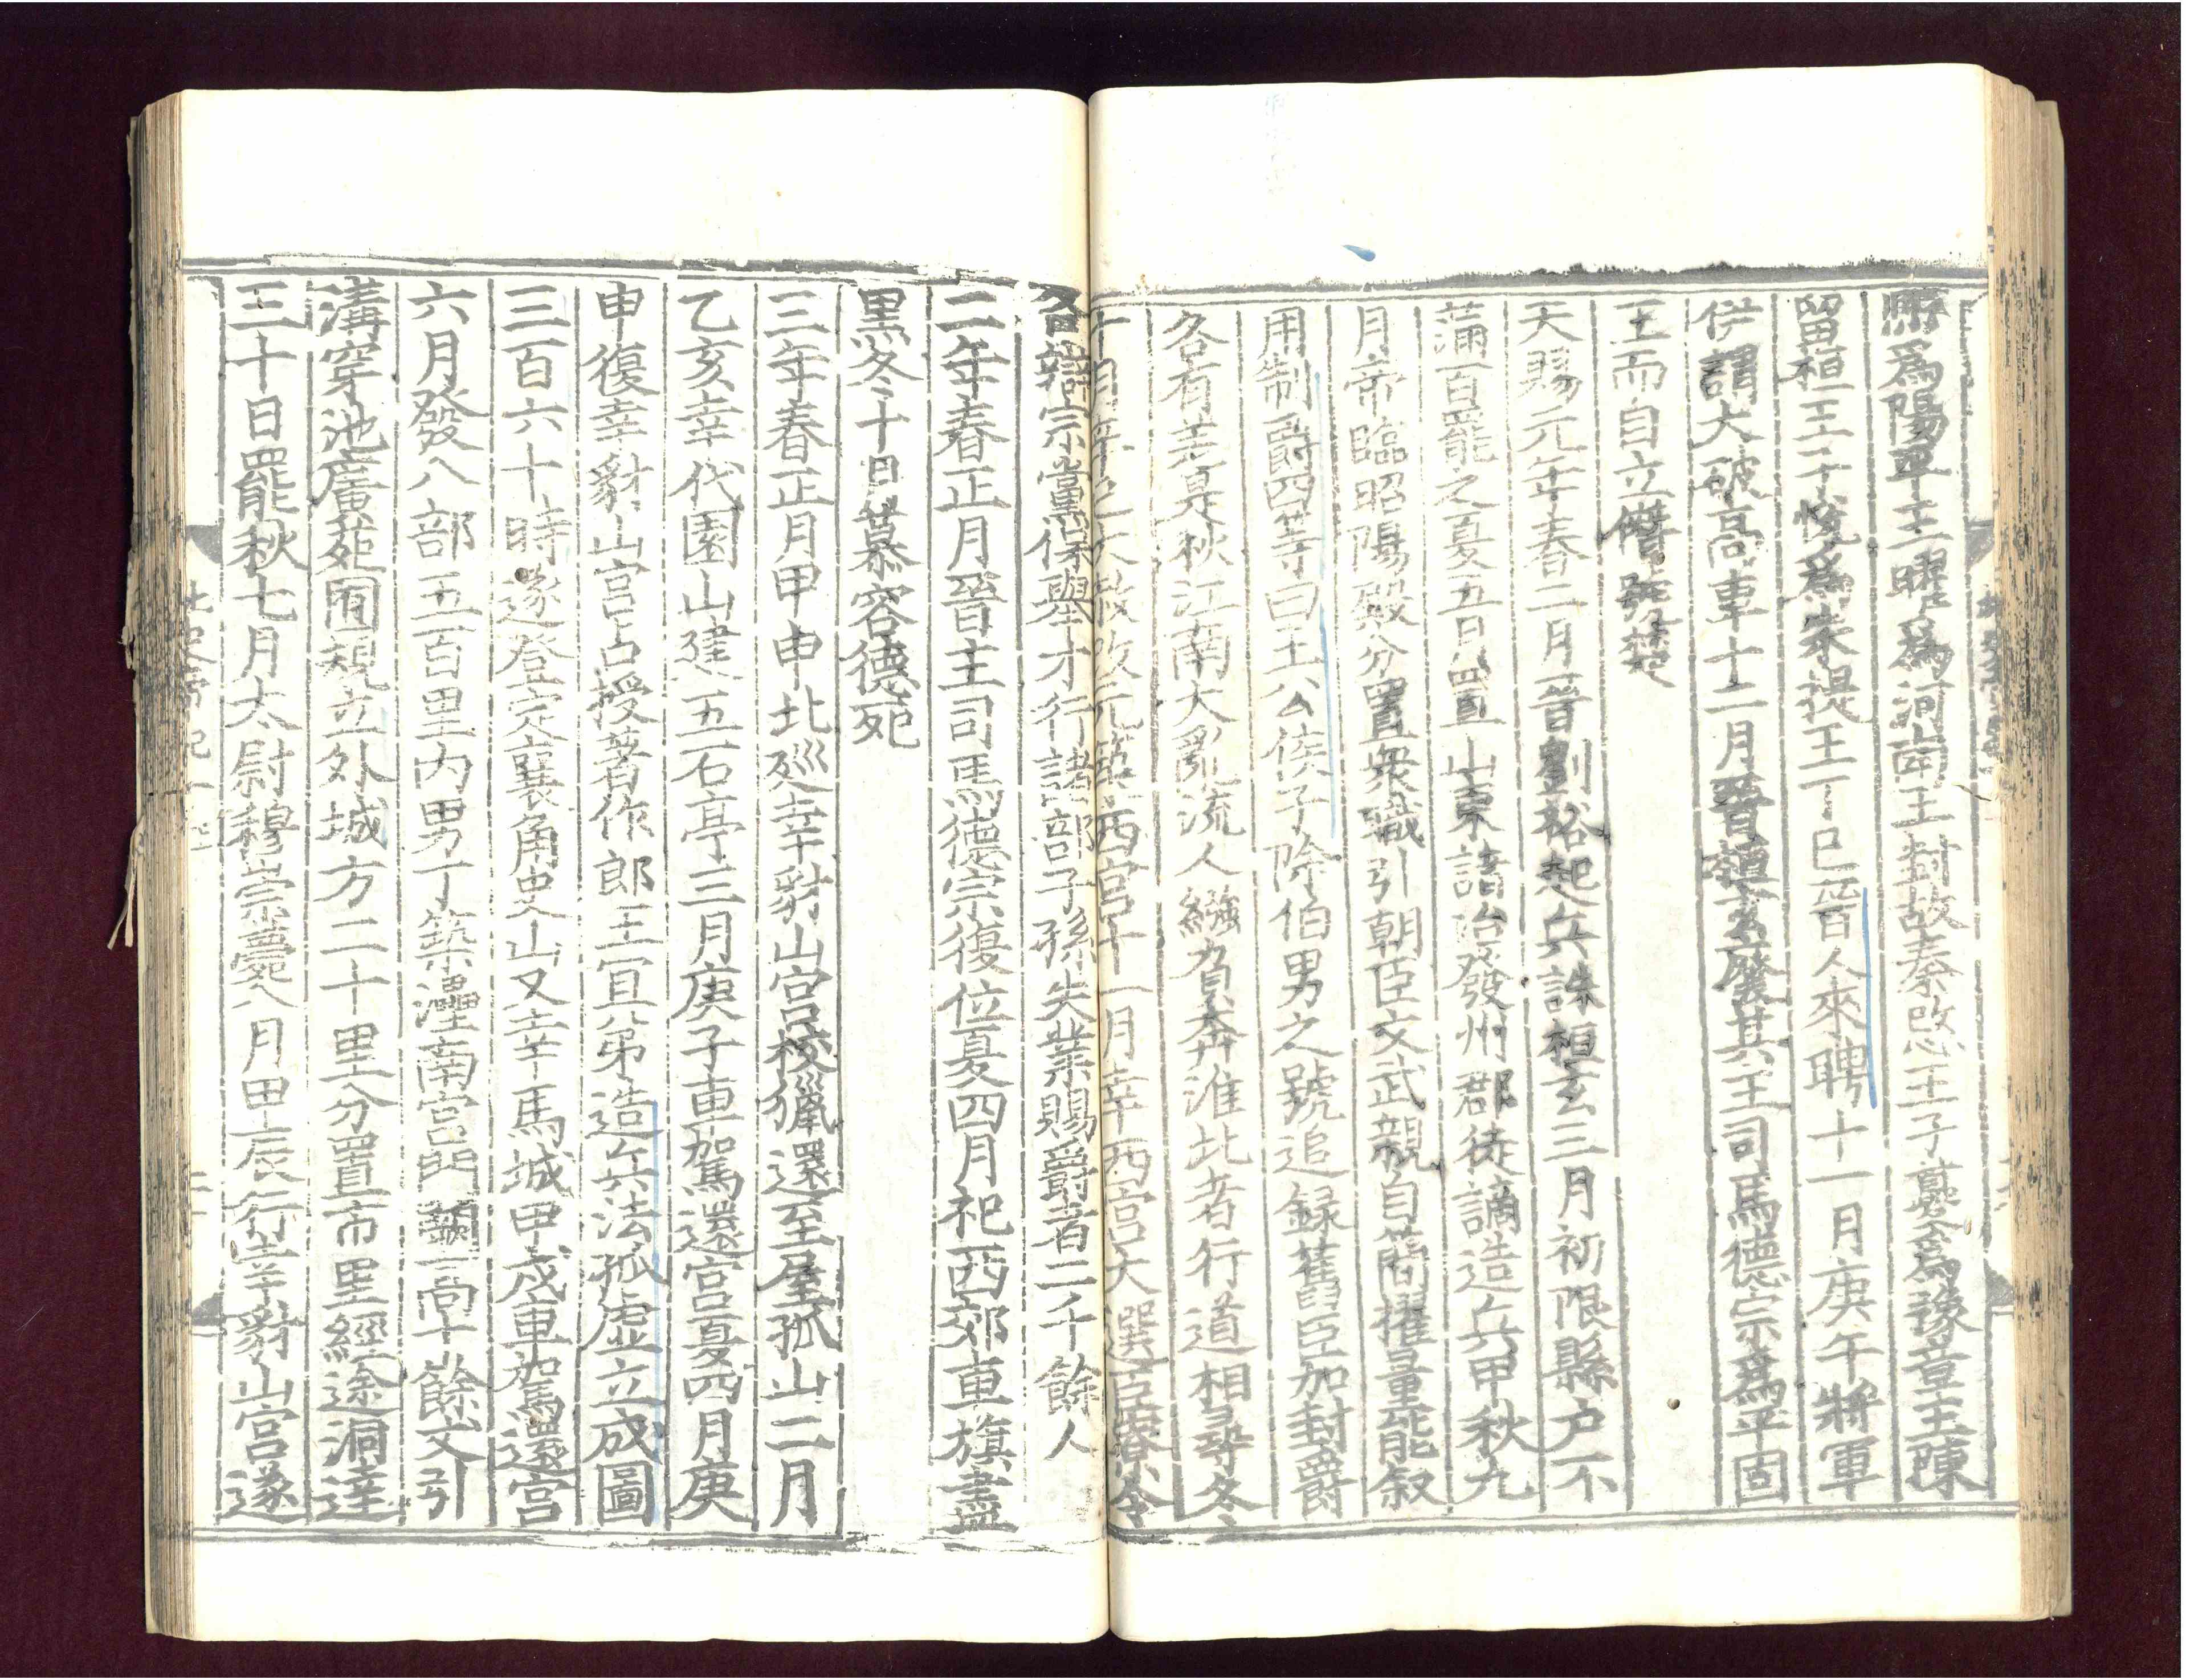 熙爲陽平王曜爲河南王封故秦愍王子夔爲豫章王陳
留桓王子悅爲朱提王丁巳晉人來聘十一月庚午將軍
伊謂大破高車十二月晉桓玄廢其主司馬德宗爲平固
王而自立僭號楚
天賜元年春二月晉劉裕起兵誅桓玄三月初限縣户不
滿百罷之夏五月置山東諸冶發州郡徒謫造兵甲秋九
月帝臨昭陽殿分置衆職引朝臣文武親自簡擢量能叙
用制爵四等曰王公侯子除伯男之號追録舊臣加封爵
各有差是秋江南大亂流人繦負奔淮北者行道相尋冬
十月辛巳大赦改元築西宮十一月幸西宮大選臣寮令
各辯宗黨保舉才行諸部子孫失業賜爵者二千餘人
二年春正月晉主司馬德宗復位夏四月祀西郊車旗盡
黑冬十月慕容德死
三年春正月甲申北巡幸豺山宮校獵還至屋孤山二月
乙亥幸代園山建五石亭三月庚子車駕還宮夏四月庚
申復幸豺山宮占授著作郎王宜弟造兵法孤虛立成圖
三百六十時遂登定襄角史山又幸馬城甲戌車駕還宮
六月發八部五百里内男丁築灅南宮門闕高十餘丈引
溝穿池廣苑囿規立外城方二十里分置市里經途洞達
三十日罷秋七月太尉穆崇薨八月甲辰行幸豺山宮遂
北史帝紀一